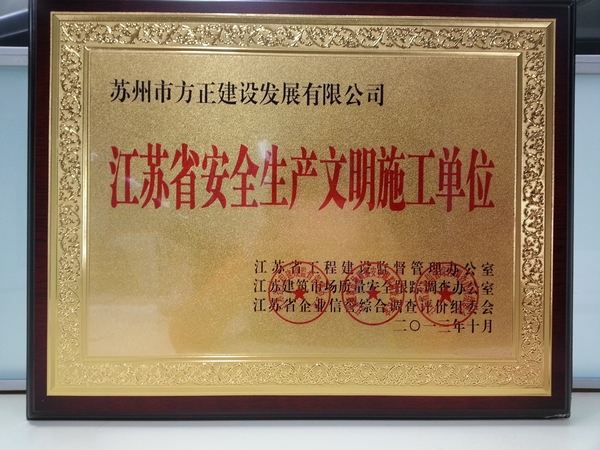 苏州市方正建设发展有限公司
江苏省安全生产文明施工单位
江苏省工程建设监督管理办公室
江苏建筑市场质量安全跟踪调查办公室
江苏省企业信誉综合调查评价组委会
二〇一三年十月